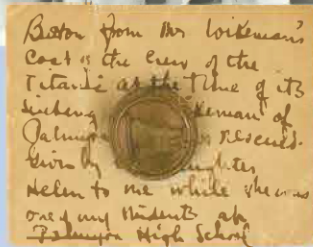 Button from Mr Wikeman's
Coat of the Crew of the
Titanic at the Time of its
Sinking
Palmyra rescued.
Given by daughter
Helen to me while she was
one of my students at
Palmyra High School